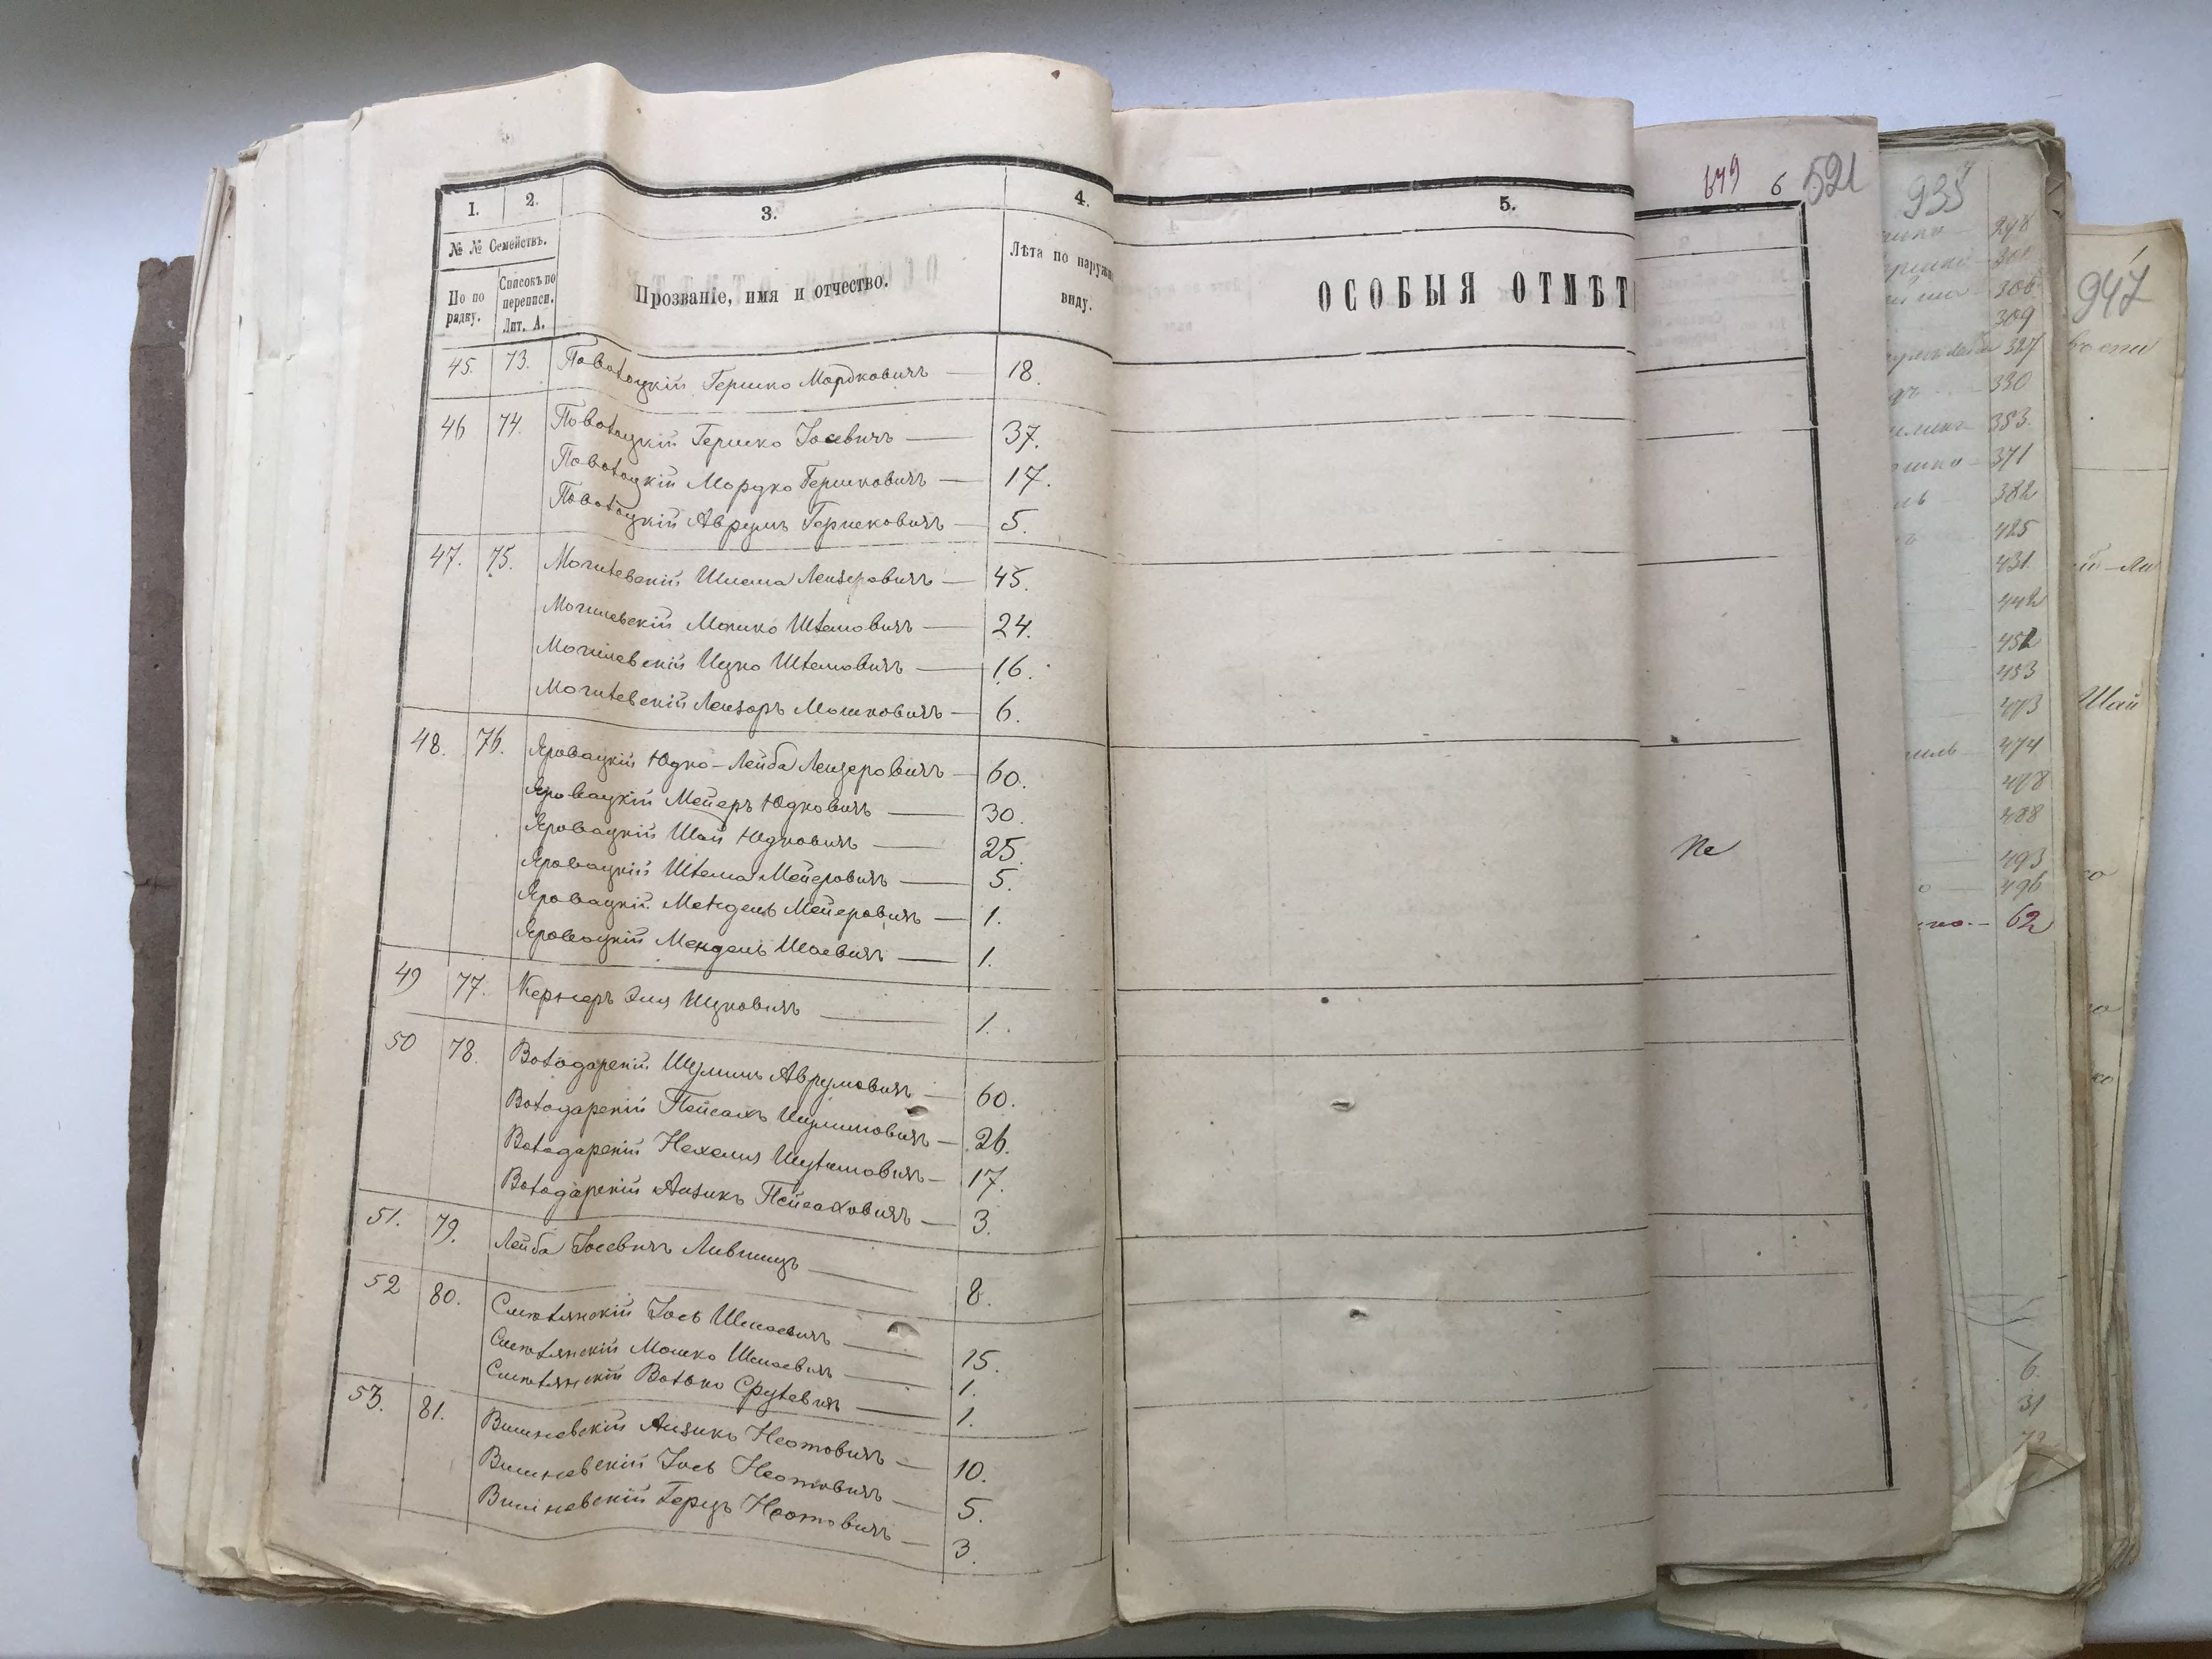 1. 2. 3. 4.
№ № Семействъ.
По по рядку. Списокъ по переписи. Лит. А. Прозваніе, имя и отчество. Лѣта по наруж виду.
45. 73. Поволоцкій Гершко Мордковичъ — 18.
46 74. Поволоцкій Гершко Іосевичъ — 37.
Поволоцкій Мордко Гершковичъ — 17.
Поволоцкій Аврумъ Гершковичъ — 5.
47. 75. Могилевскій Шлема Лейзеровичъ — 45.
Могилевскій Мошко Шлемовичъ — 24.
Могилевскій Ицко Шлемовичъ — 16.
Могилевскій Лейзоръ Мошковичъ — 6.
48. 76. Яровацкій Юдко-Лейба Лейзеровичъ — 60.
Яровацкій Мейеръ Юдковичъ — 30.
Яровацкій Шай Юдковичъ — 25.
Яровацкій Шлема Мейеровичъ — 5.
Яровацкій Мендель Мейеровичъ — 1.
Яровацкій Мендель Шаевичъ — 1.
49 77. Кернеръ Эля Ицковичъ — 1.
50 78. Володарскій Шулимъ Аврумовичъ — 60.
Володарскій Пейсахъ Шулимовичъ — 26.
Володарскій Нехемія Шулимовичъ — 17.
Володарскій Айзикъ Пейсаховичъ — 3.
51. 79. Лейба Іосевичъ Лившицъ — 8.
52 80. Смолянскій Іось Шмаевичъ — 15.
Смолянскій Мошко Шмаевичъ — 1.
Смолянскій Волько Срулевичъ — 1.
53. 81. Вишневскій Айзикъ Нотовичъ — 10.
Вишневскій Іось Нотовичъ — 5.
Вишневскій Герцъ Нотовичъ — 3.
5.
ОСОБЫЯ ОТМѢТ
649 6 521
935
298
306
309
327
330
353.
371
382
425
431.
442
452
453
473
474
478
488
493
496
62
6.
31
947
Шай